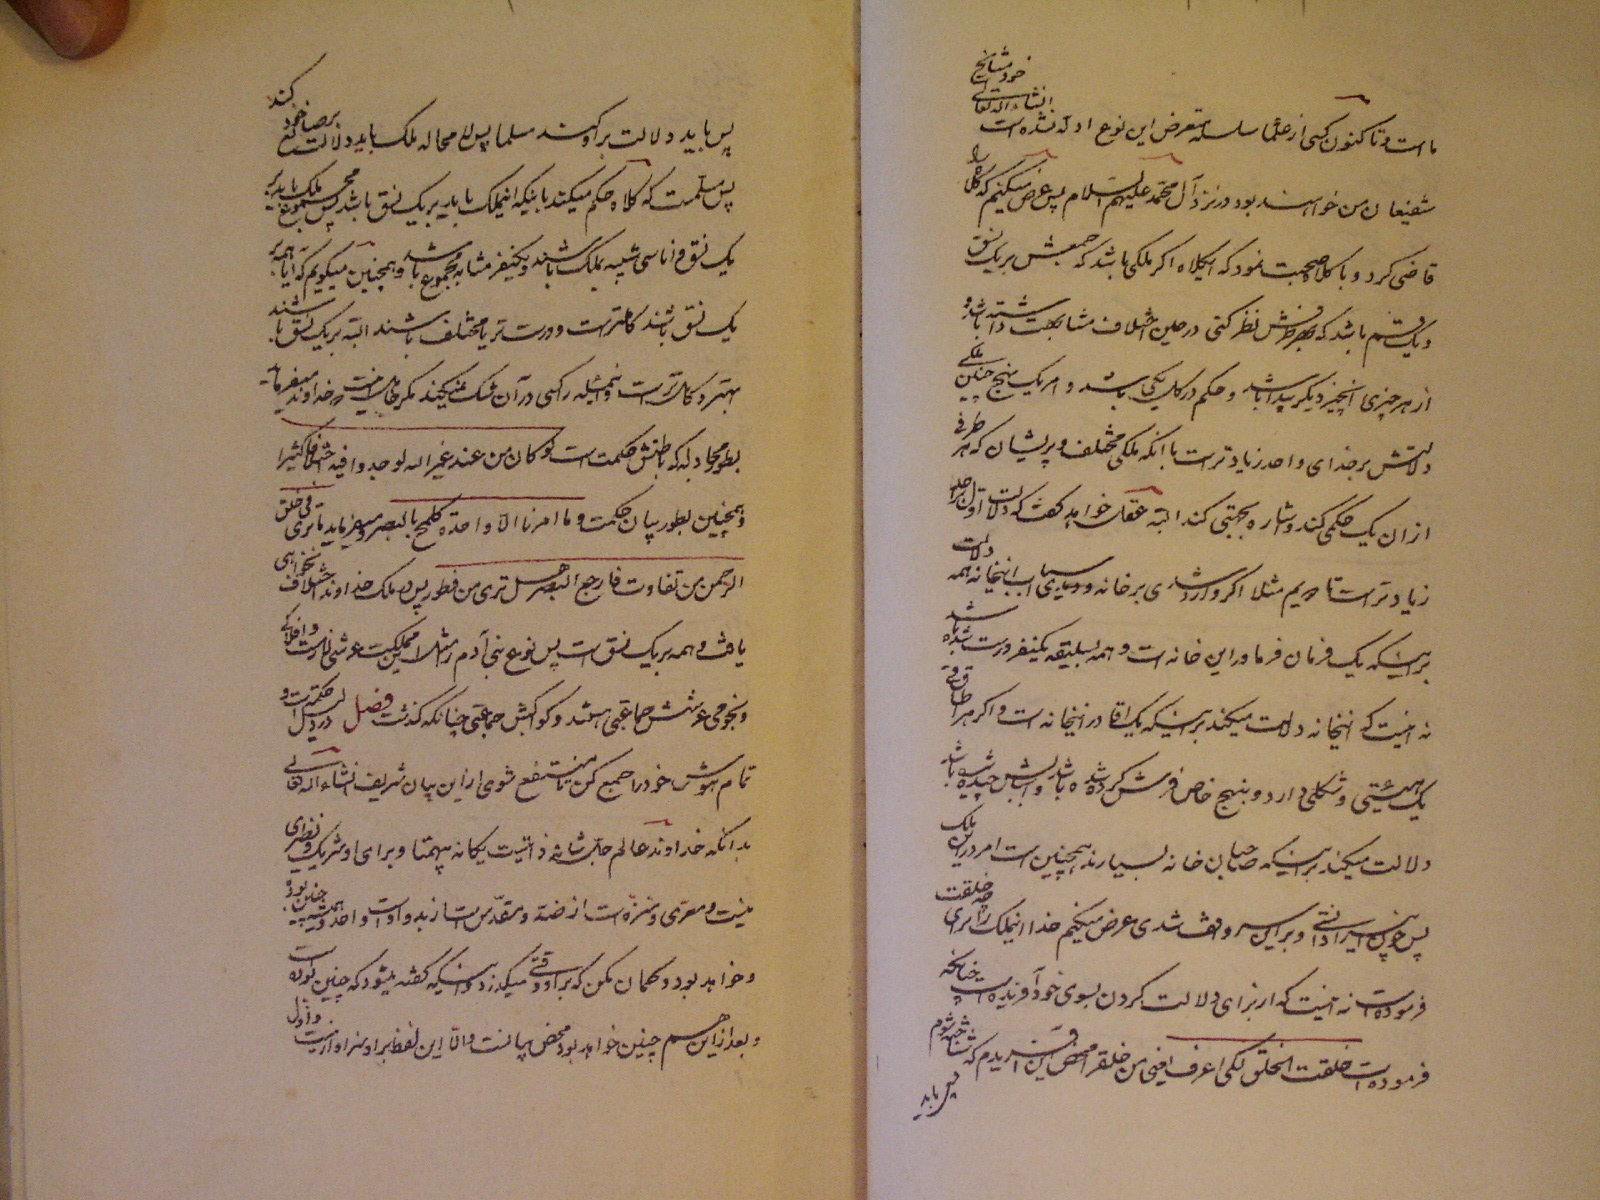 ما است و تا کنون کسی از علما سلسله متعرض این نوع ادله نشده است انشاء الله تعالی خود مشایخ
شفیعان من خواهند بود در نزد آل محمد علیهم السلام پس عرض میکنم که کلاه را
قاضی کرد و با کلاه صحبت نمود که ایکلاه اگر ملکی باشد که جمیعش بر یک نسق
و یک قسم باشد که بهر طرفش نظر کنی در عین اختلاف مشابهت داشته باشد و
از هر چیزی آنچیز دیگر پیدا باشد و حکم در کل یکی باشد و امر یک نهج چنین ملکی
دلالتش بر خدای واحد زیادتر است یا آنکه ملکی مختلف و پریشان که هر طرفی
از ان یک حکمی کند و اشاره بجهتی کند البته عقل خواهد گفت که دلالت اول بر واحد
زیادتر است تا دویم مثلا اگر وارد شدی بر خانه و دیدی اسباب اینخانه همه دلالت
بر اینکه یک فرمان فرما در این خانه است و همه بسلیقه یکنفر درست شده باشد
نه اینست که اینخانه دلالت میکند بر اینکه یک اقا در اینخانه است و اگر هر اطاقی
یک هیئتی و شکلی دارد و بنهج خاص فرش کرده شده باشد و اسبابش چیده شده باشد
دلالت میکند بر اینکه صاحبان خانه بسیارند همچنین است امر در این ملک
پس چون این را دانستی و بر این سر واقف شدی عرض میکنم خدا اینملک را برای چه خلقت
فرموده است نه اینست که از برای دلالت کردن بسوی خود آفریده است چنانکه
فرموده است خلقت الخلق لکی اعرف یعنی من خلق را محض این آفریدم که شناخته شوم
پس باید
پس باید دلالت بر او کنند مسلما پس لا محاله ملک باید دلالت بر صانع خود کند
پس مسلمست که کلاه حکم میکند باینکه اینملک باید بر یک نسق باشد پس مجموع ملک باید بر
یک نسق و اناسی شبیه بملک باشند و یکنفر مشابه مجموع باشد و همچنین میگویم که آیا همه بر
یک نسق باشند کاملتر است و درست تر یا مختلف باشند البته بر یک نسق باشند
بهتر و کاملتر است و اینمسئله را کسی در آن شک نمیکند مگر خداوند میفرماید
بطور مجادله که باطنش حکمت است لو کان من عند غیر الله لوجدوا فیه اختلافا کثیرا
و همچنین بطور بیان حکمت و ما امرنا الا واحدة کلمح بالبصر و میفرماید ما تری فی خلق
الرحمن من تفاوت فارجع البصر هل تری من فطور پس در ملک خداوند اختلاف نخواهی
یافت و همه بر یک نسق است پس نوع بنی آدم را مثلا مملکت عرشی است و افلاکی
و نجومی عرشش جماعتی هستند و کواکبش جماعتی چنانکه گذشت فصل در دلیل حکمت است و
تمام هوش خود را جمع کن تا منتفع شوی از این بیان شریف انشاء الله تعالی
بدانکه خداوند عالم جل شانه ذاتیست یگانه بیهمتا و برای او شریک و نظیری
نیست و معری و منزه است از ضد و مقدس است از ند و او است واحد و همیشه چنین بود
و خواهد بود و گمان مکن که بر او وقتی میگذرد و اینکه گفته میشود که چنین بوده است
و بعد از این هم چنین خواهد بود محض بیانست و الا این لفظ بر او سزاوار نیست و ازل